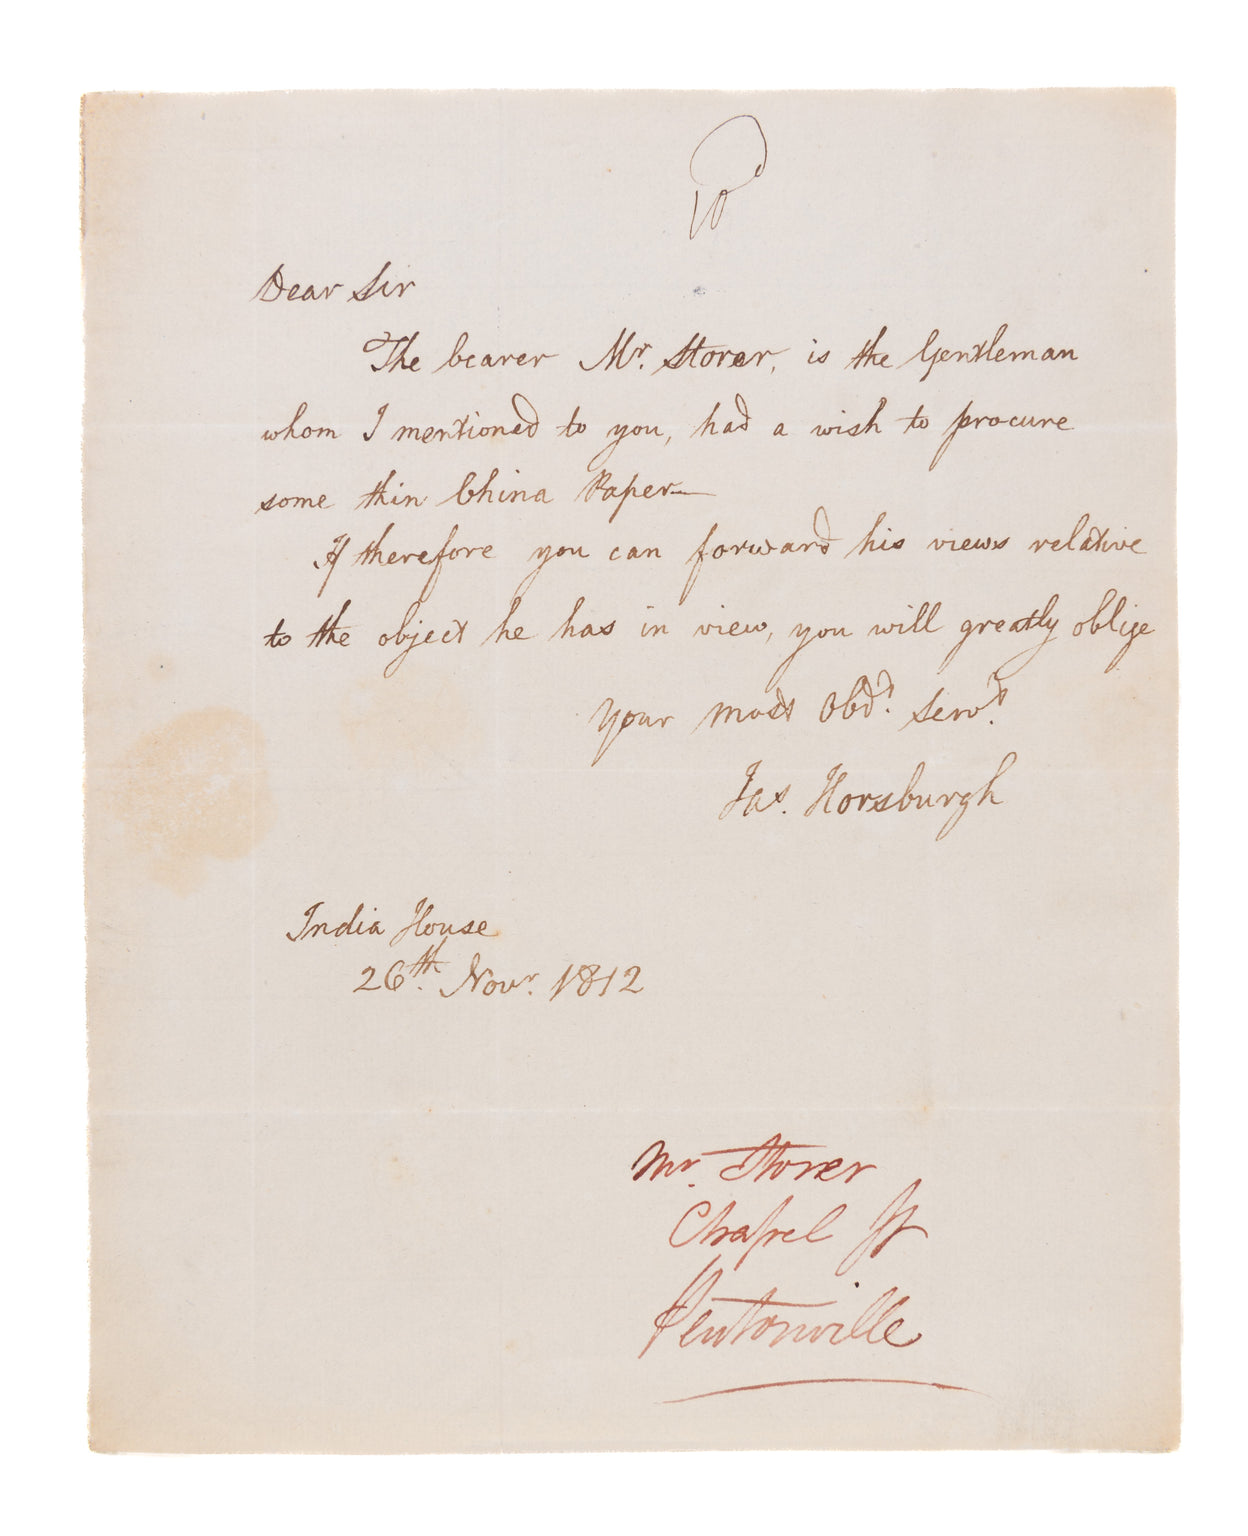 Dear Sir
The bearer Mr. Storer, is the Gentleman
whom I mentioned to you, had a wish to procure
some thin China Paper—
If therefore you can forward his views relative
to the object he has in view, you will greatly oblige
Your most Obdt. Servt.
Jas. Horsburgh
India House
26th. Novr. 1812
Mr. Storer
Chapel St
Pentonville